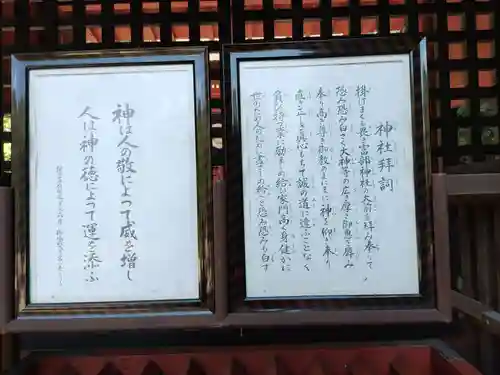 神社拝詞
掛けまくも畏き宮部神社の大前を拝み奉りて
恐み恐み白さく大神等の広き厚き御恵を辱み
奉り高き尊き御教のまにまに神を仰ぎ奉り
直き正しき真心もちて誠の道に違ふことなく
負ひ持つ業に励ましめ給ひ家門高く身健かに
世のため人のために尽さしめ給へと恐み恐みも白す
神は人の敬によつて威を増し
人は神の徳によつて運を添ふ